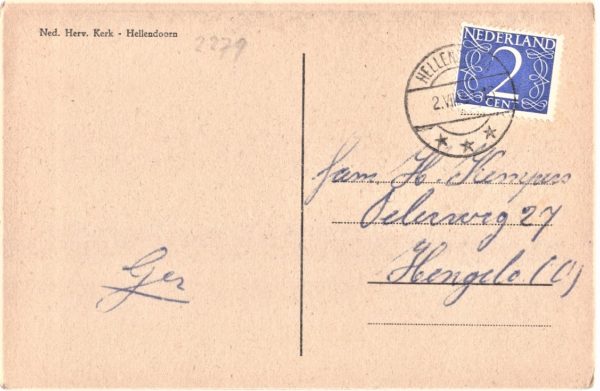 Ned. Herv. Kerk - Hellendoorn
2279
NEDERLAND
2
CENT
HELLEN
2.VII
Fam. H. Kempers
27
Hengelo (O)
Ger